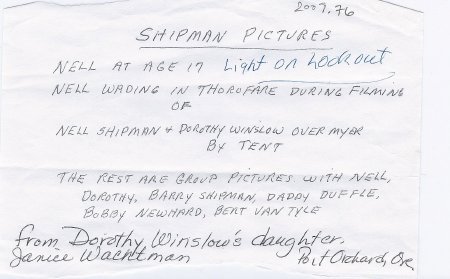 2007.76
SHIPMAN PICTURES
NELL AT AGE 17 Light on Lookout
NELL WADING IN THOROFARE DURING FILMING
OF
NELL SHIPMAN & DOROTHY WINSLOW OVER MYER
BY TENT
THE REST ARE GROUP PICTURES WITH NELL,
DOROTHY, BARRY SHIPMAN, DADDY DUFFLE,
BOBBY NEWHARD, BERT VAN TYLE
from Dorothy Winslow's daughter.
Janice Wachtman Port Orchard, Ore.